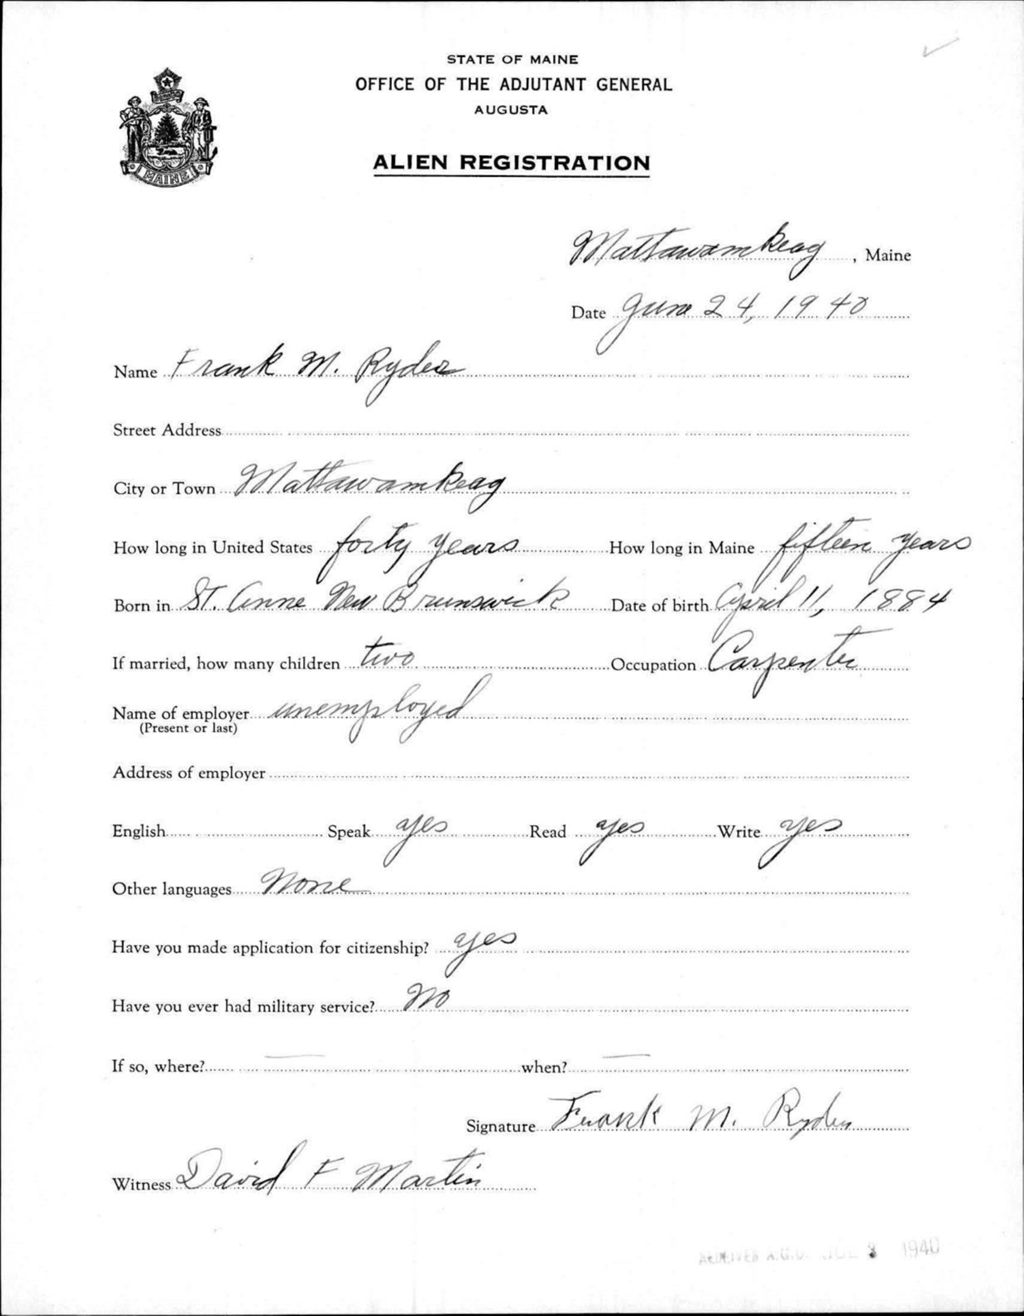 STATE OF MAINE
OFFICE OF THE ADJUTANT GENERAL
AUGUSTA
ALIEN REGISTRATION
MAINE
Mattawamkeag, Maine
Date June 24, 1940
Name Frank M. Ryder
Street Address
City or Town Mattawamkeag
How long in United States forty years How long in Maine fifteen years
Born in St. Anne New Brunswick Date of birth April 11, 1884
If married, how many children two Occupation Carpenter
Name of employer unemployed
(Present or last)
Address of employer
English Speak yes Read yes Write yes
Other languages None
Have you made application for citizenship? yes
Have you ever had military service? No
If so, where? — when? —
Signature Frank M. Ryder
Witness David F Martin
A.G.O. JUL 1940